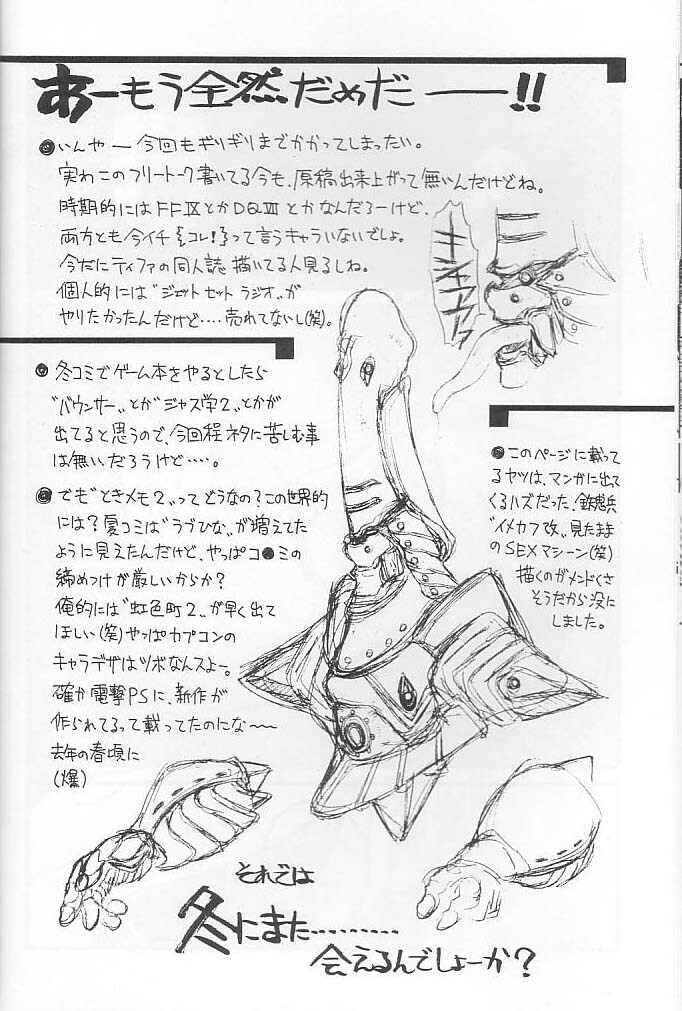 あーもう全然だめだ――!!
●いんやー今回もギリギリまでかかってしまったい。
実わこのフリートーク書いてる今も、原稿出来上がって無いんだけどね。
時期的にはFFⅨとかDQⅦとかなんだろーけど、
両方とも今イチ{コレ!}って言うキャラいないでしょ。
今だにティファの同人誌描いてる人見るしね。
個人的には〝ジェットセットラジオ〟が
やりたかったんだけど‥‥売れてないし(笑)。
●冬コミでゲーム本をやるとしたら
〝バウンサー〟とか〝ジャス学2〟とかが
出てると思うので、今回程ネタに苦しむ事
は無いだろうけど‥‥。
●でも〝ときメモ2〟ってどうなの?この世界的
には?夏コミは〝ラブひな〟が増えてた
ように見えたんだけど、やっぱコ●ミの
締めつけが厳しいからか?
俺的には〝虹色町2〟が早く出て
ほしい(笑)やっぱカプコンの
キャラデザはツボなんスよー。
確か電撃PSに、新作が
作られてるって載ってたのにな〜〜
去年の春頃に
(爆)
●このページに載って
るヤツは、マンガに出て
くるハズだった、鉄騎兵
〝イメカフ改〟見たまま
のSEXマシーン(笑)
描くのがメンドくさ
そうだから没に
しました。
それでは
冬にまた‥‥‥‥‥
会えるんでしょーか?